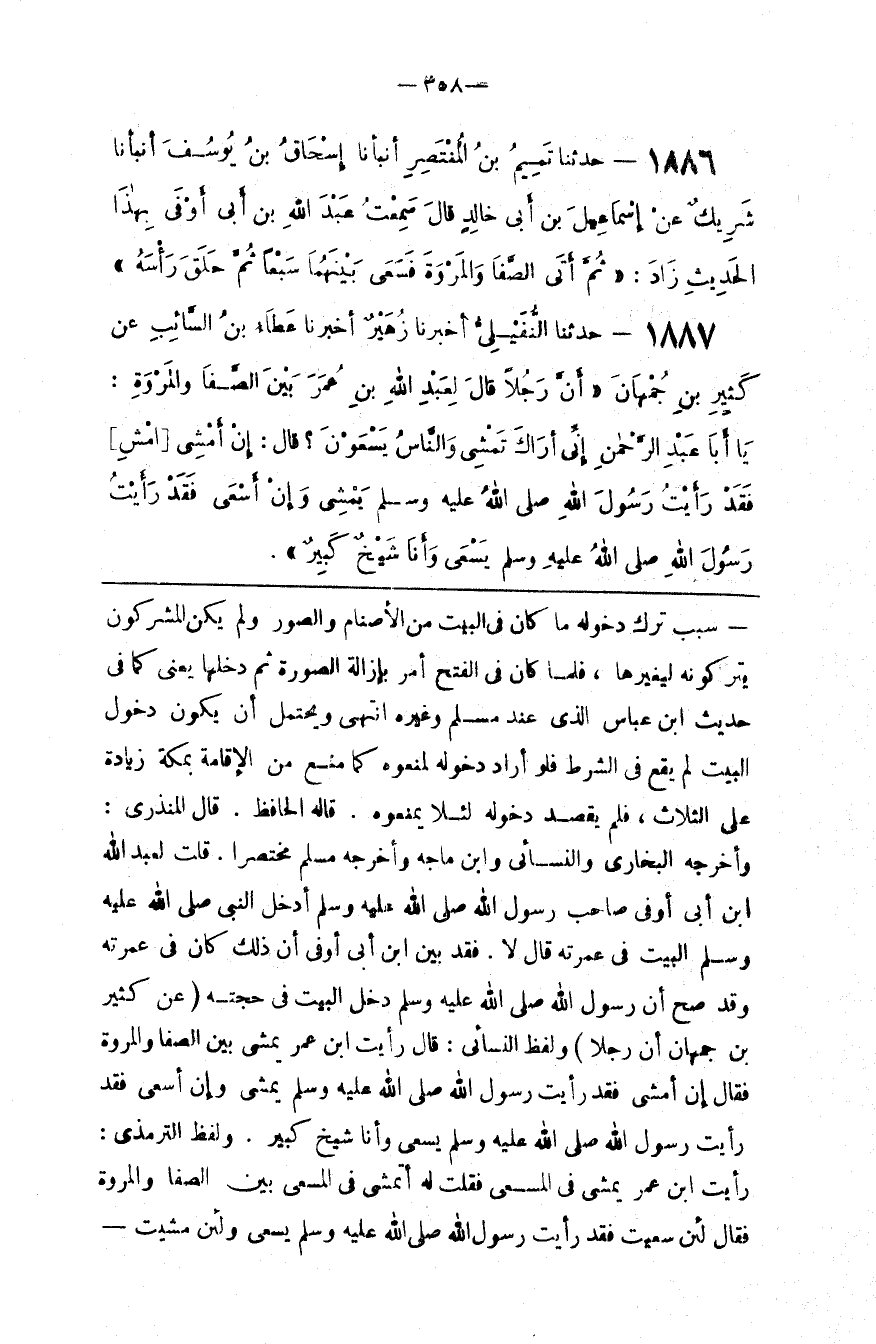 — ٣٥٨ —
١٨٨٦ — حدثنا تَمِيمُ بنُ المُنْتَصِرِ أنبأنا إِسْحَاقُ بنُ يُوسُفَ أنبأنا
شَرِيكٌ عنْ إِسْمَاعِيلَ بن أَبى خالِدٍ قالَ سَمِعْتُ عَبْدَ اللهِ بن أَبى أَوْفَى بِهٰذَا
الحَدِيثِ زَادَ : « ثُمَّ أَتَى الصَّفَا وَالمَرْوَةَ فَسَعَى بَيْنَهُمَا سَبْعاً ثُمَّ حَلَقَ رَأْسَهُ »
١٨٨٧ — حدثنا النُّفَيْلِىُّ أخبرنا زُهَيْرٌ أخبرنا عَطَاءُ بنُ السَّائِبِ عن
كَثِيرِ بنِ جُمْهَانَ « أَنَّ رَجُلاً قالَ لِعَبْدِ اللهِ بنِ عُمَرَ بَيْنَ الصَّفَا والمَرْوَةِ :
يَا أَبَا عَبْدِ الرَّحْمٰنِ إِنِّى أَرَاكَ تَمْشِى وَالنَّاسُ يَسْعَوْنَ ؟ قال : إِنْ أَمْشِى [امْشِ]
فَقَدْ رَأَيْتُ رَسُولَ اللهِ صلى اللهُ عليه وسلم يَمْشِى وَإِنْ أَسْعَى فَقَدْ رَأَيْتُ
رَسُولَ اللهِ صلى اللهُ عليهِ وسلم يَسْعَى وَأَنَا شَيْخٌ كَبِيرٌ » .
— سبب ترك دخوله ما كان فى البيت من الأصنام والصور ولم يكن المشركون
يتركونه ليغيرها ، فلما كان فى الفتح أمر بإزالة الصورة ثم دخلها يعنى كما فى
حديث ابن عباس الذى عند مسلم وغيره انتهى ويحتمل أن يكون دخول
البيت لم يقع فى الشرط فلو أراد دخوله لمنعوه كما منع من الإقامة بمكة زيادة
على الثلاث ، فلم يقصد دخوله لئلا يمنعوه . قاله الحافظ . قال المنذرى :
وأخرجه البخارى والنسائى وابن ماجه وأخرجه مسلم مختصرا . قلت لعبد الله
ابن أبى أوفى صاحب رسول الله صلى الله عليه وسلم أدخل النبى صلى الله عليه
وسلم البيت فى عمرته قال لا . فقد بين ابن أبى أوفى أن ذلك كان فى عمرته
وقد صح أن رسول الله صلى الله عليه وسلم دخل البيت فى حجته ( عن كثير
بن جمهان أن رجلا ) ولفظ النسائى : قال رأيت ابن عمر يمشى بين الصفا والمروة
فقال إن أمشى فقد رأيت رسول الله صلى الله عليه وسلم يمشى وإن أسعى فقد
رأيت رسول الله صلى الله عليه وسلم يسعى وأنا شيخ كبير . ولفظ الترمذى :
رأيت ابن عمر يمشى فى المسعى فقلت له أتمشى فى المسعى بين الصفا والمروة
فقال لئن سعيت فقد رأيت رسول الله صلى الله عليه وسلم يسعى ولئن مشيت —